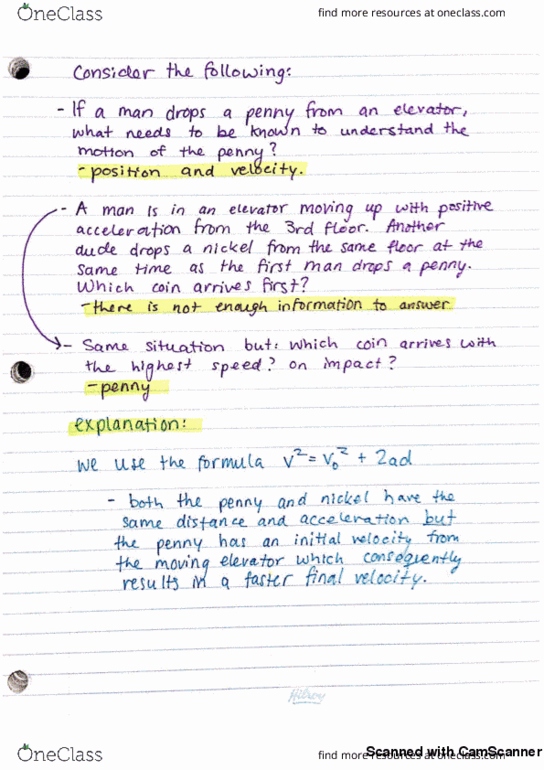 OneClass
find more resources at oneclass.com
Consider the following:
- If a man drops a penny from an elevator,
what needs to be known to understand the
motion of the penny?
- position and velocity.
- A man is in an elevator moving up with positive
acceleration from the 3rd floor. Another
dude drops a nickel from the same floor at the
same time as the first man drops a penny.
Which coin arrives first?
- there is not enough information to answer
- Same situation but: which coin arrives with
the highest speed? on impact?
- penny
explanation:
We use the formula v² = v₀² + 2ad
- both the penny and nickel have the
same distance and acceleration but
the penny has an initial velocity from
the moving elevator which conseqently
results in a faster final velocity.
Hilroy
OneClass
find more resources at oneclass.com
Scanned with CamScanner